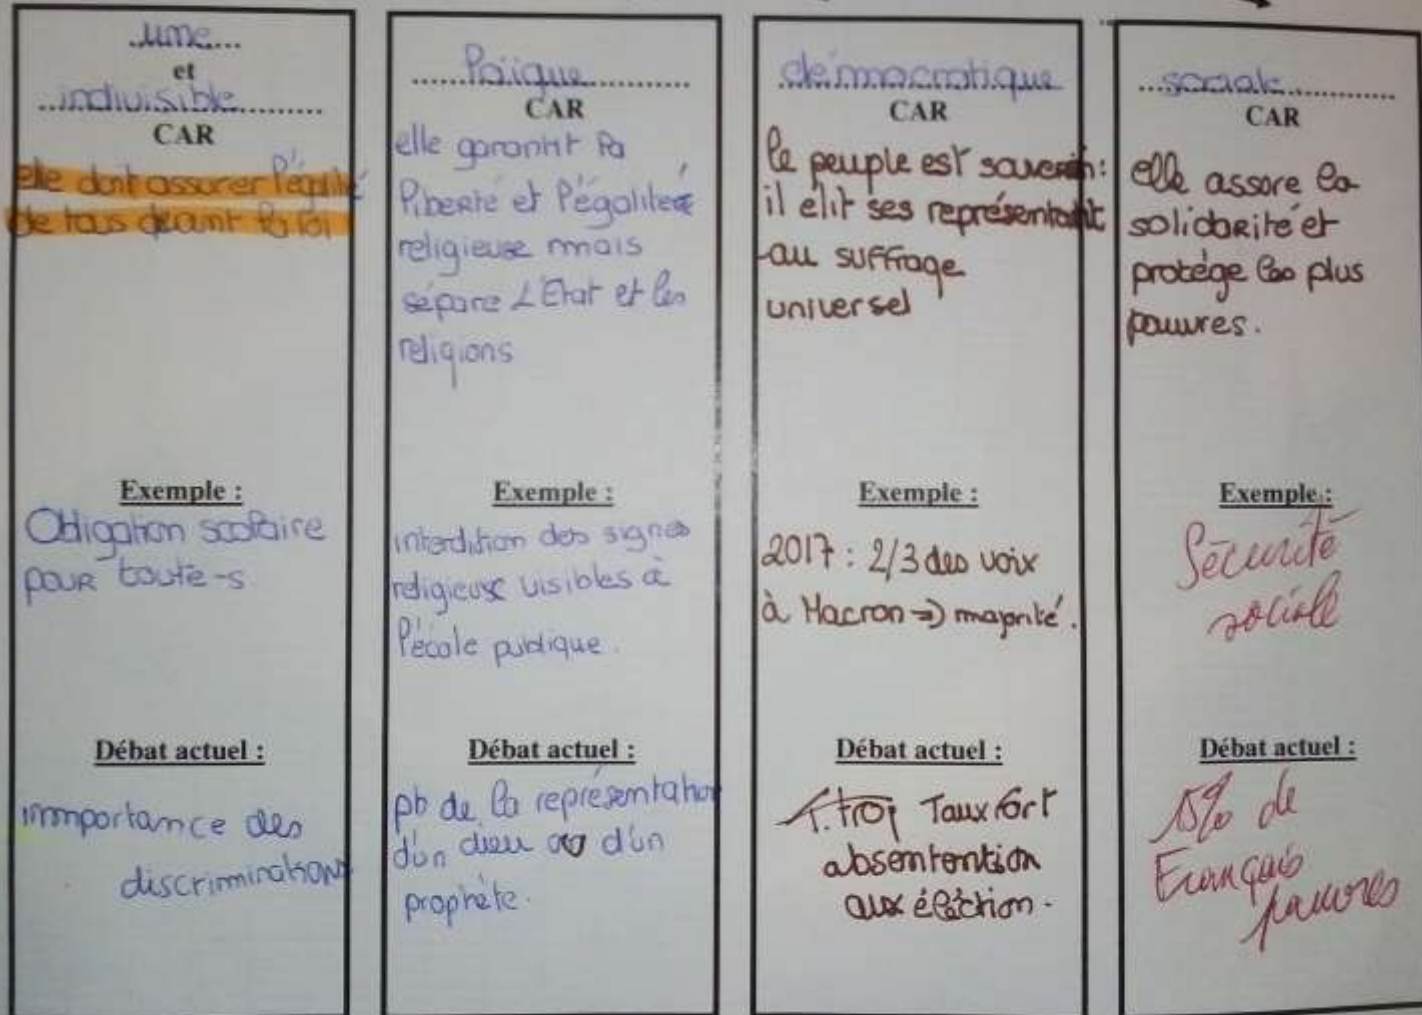 une
et
indivisible
CAR
elle doit assurer l'égalité
de tous devant la loi
Exemple :
Obligation scolaire
pour toute-s
Débat actuel :
immportance des
discriminations
laïque
CAR
elle garantit la
liberté et l'égalitée
religieuse mais
sépare L'Etat et les
religions
Exemple :
interdition des signes
religieuse visibles à
l'école publique.
Débat actuel :
pb de la représentation
d'un dieu ou d'un
prophète.
démocratique
CAR
le peuple est souverain:
il elit ses représentant
au suffrage
universel
Exemple :
2017 : 2/3 des voix
à Macron => majorité.
Débat actuel :
Taux fort
absentention
aux éléction.
sociale
CAR
elle assore la
solidarité et
protége les plus
pauvres.
Exemple :
Sécurité
sociale
Débat actuel :
15% de
Français
pauvres